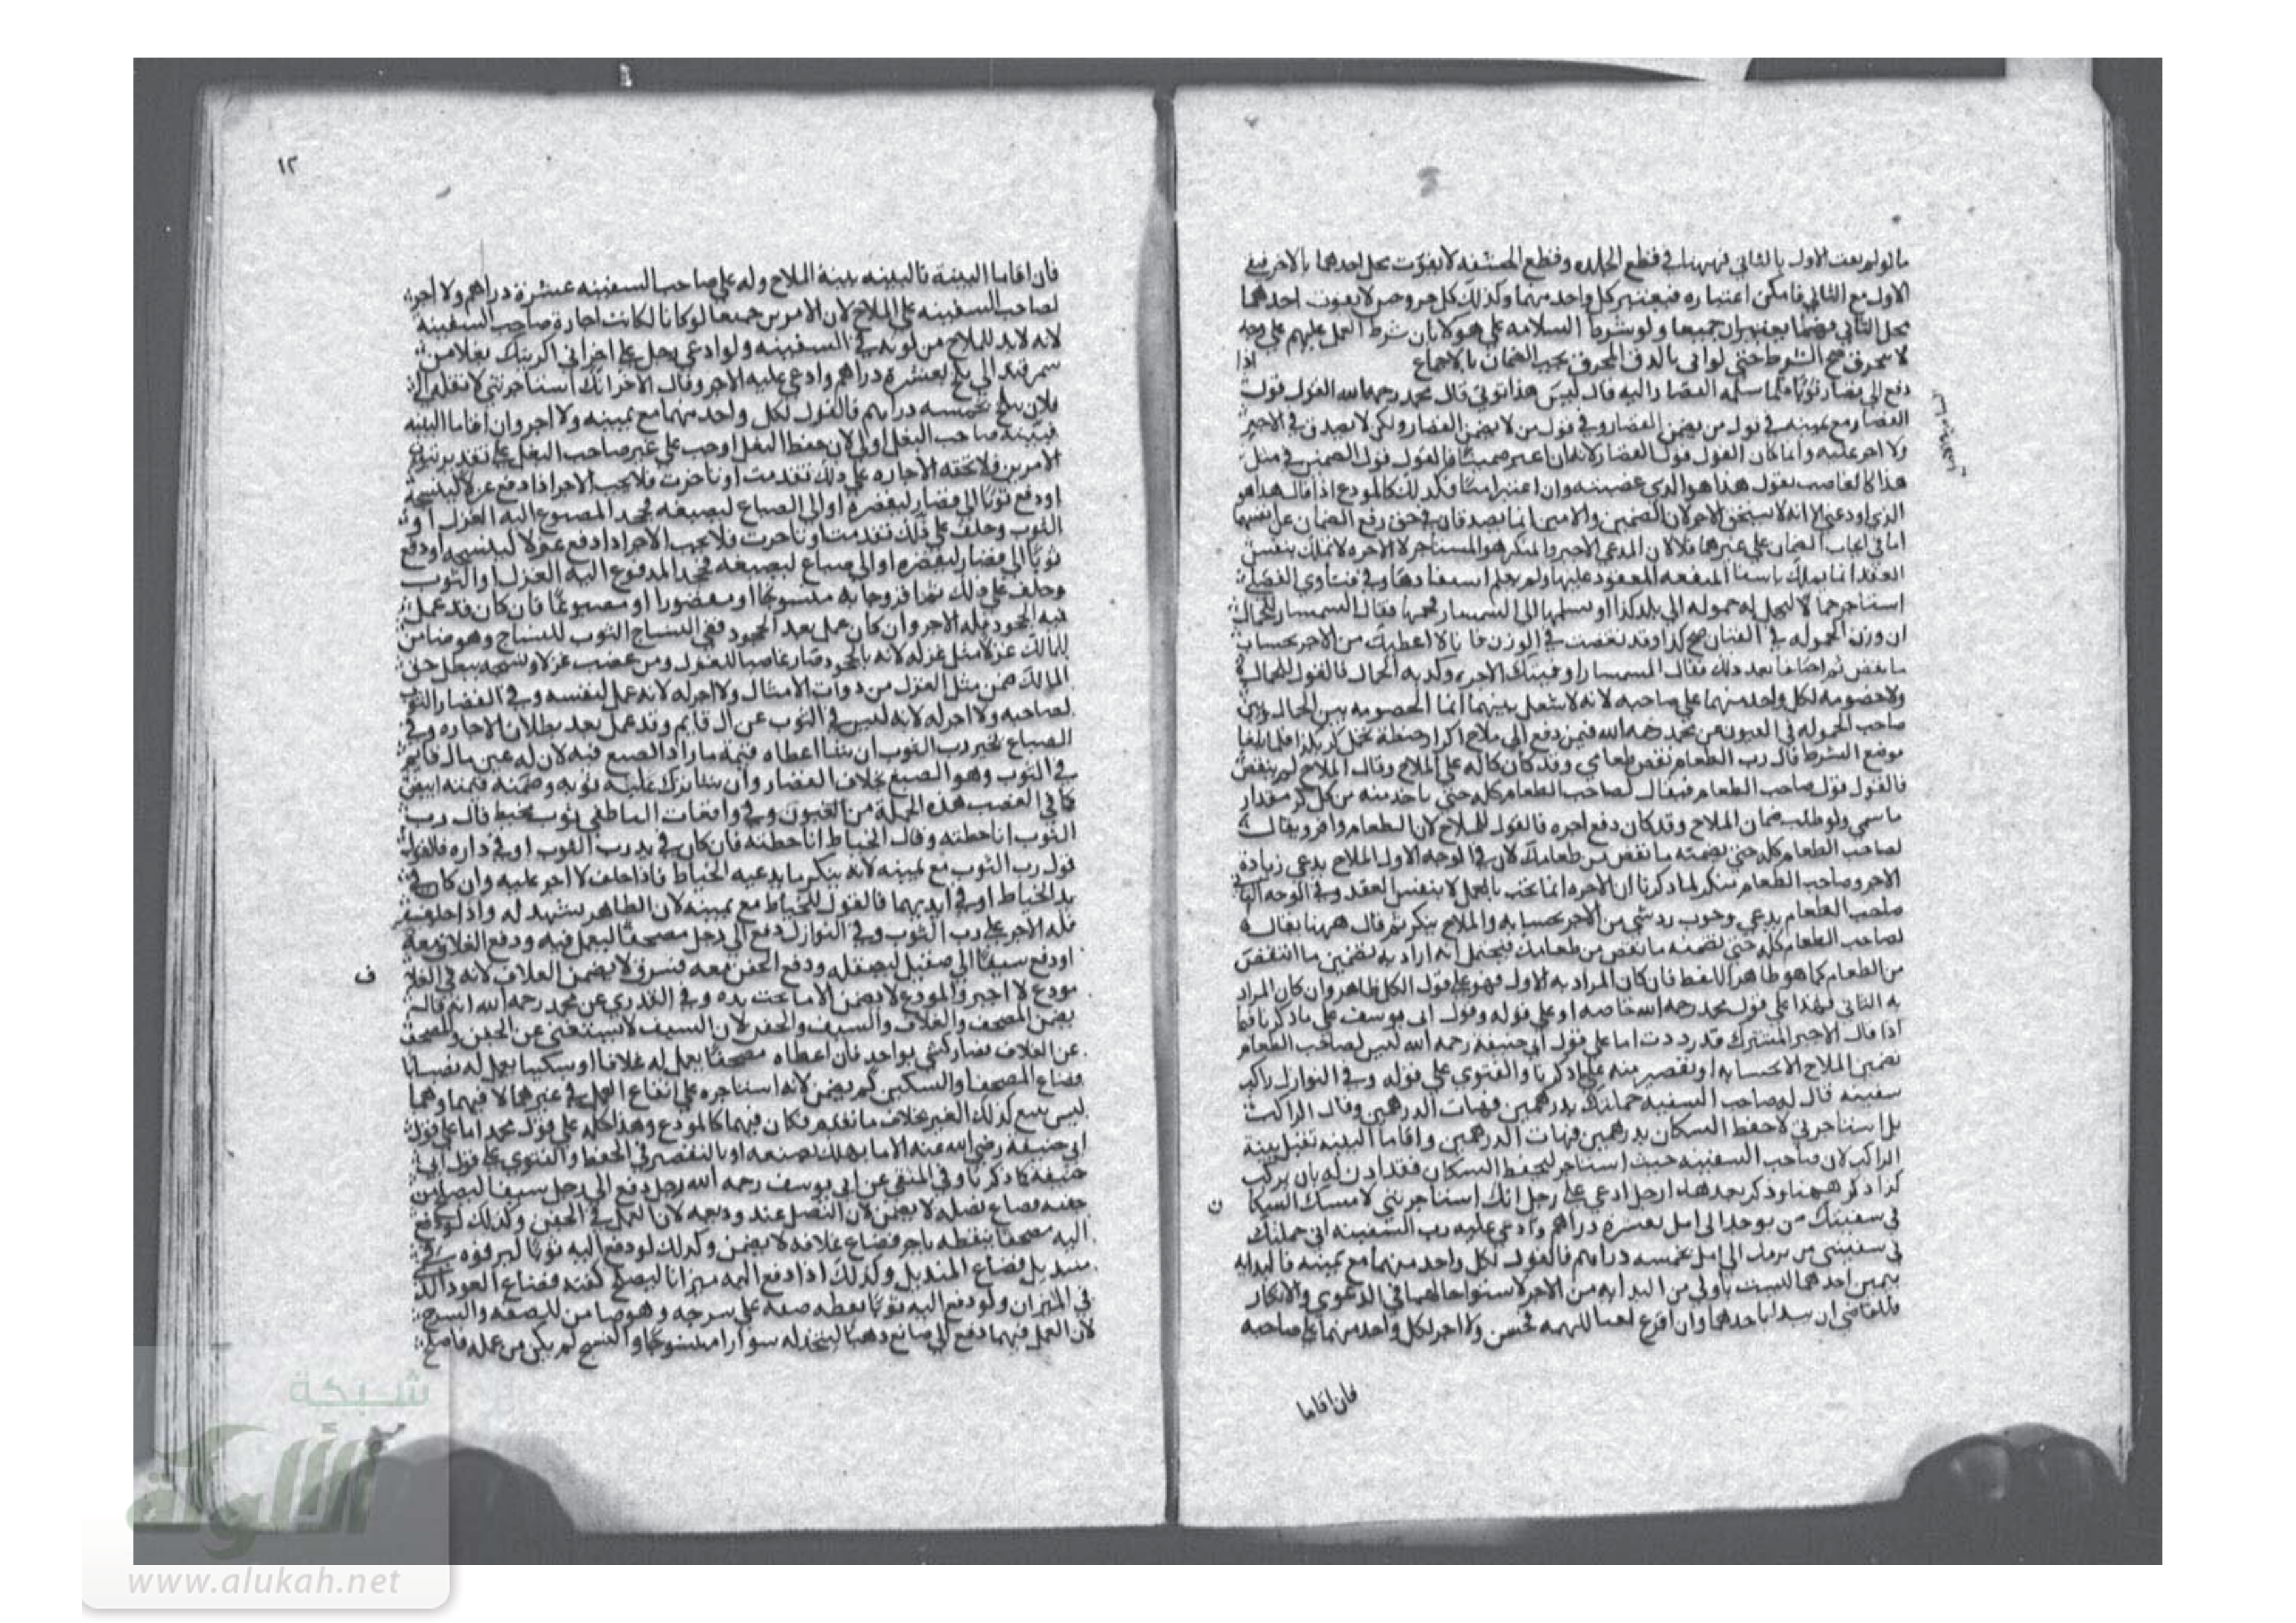 ما لو لم يفت الاول بالثاني فههنا في قطع الجلده وقطع الحشفه لا يفوت محل احدهما بالاخر فبقي
الاول مع الثاني فامكن اعتباره فيعتبر كل واحد منهما وكذلك كل جروحين لا يفوت احدهما
بحل الثاني فيهما يعتبران جميعا ولو شرط السلامه على هولا بان شرط العمل عليهم على وجه
لا يتخرق صح الشرط حتى لو اتى بالدق المخرق يجب الضمان بالاجماع اذا
دفع الى قصار ثوبا فلما سلمه القصار اليه قال ليس هذا ثوبي قال محمد رحمه الله القول قول
القصار مع يمينه في قول من يضمن القصار وفي قول من لا يضمن القصار ولكن لا يصدق في الاجر
ولا اجر عليه وانما كان القول قول القصار لانه ان اعتبر ضمينا فالقول قول الضمين في مثل
هذا كالغاصب يقول هذا هو الذي غصبته وان اعتبر امينا فكذلك كالمودع اذا قال هذا هو
الذي اودعني الا انه لا يستحق الاجر لان الضمين والامين انما يصدقان في حق رفع الضمان عن انفسهما
اما في ايجاب الضمان على غيرهما فلا لان المدعي الاجير والمنكر هو المستاجر لا الاجره لا تملك بنفس
العقد انما تملك باستيفا المنفعه المعقود عليها ولم يعلم استيفاوها وفي فتاوى الفضلي
استاجر حمالا ليحمل له حموله الى بلد كذا ويسلمها الى السمسار فحملها فقال السمسار للحمال
ان وزن الحموله في القبان صح كذا وقد نقصت في الوزن فانا لا اعطيك من الاجر بحساب
ما نقص ثم اختلفا بعد ذلك فقال السمسار اوفيتك الاجره وكذبه الحمال فالقول للحمال
ولا خصومه لكل واحد منهما على صاحبه لانه لا شغل بينهما انما الخصومه بين الحمال وبين
صاحب الحموله في العيون عن محمد رحمه الله فيمن دفع الى ملاح اكرار حنطة تحمل كر بكذا فلما بلغا
موضع الشرط قال رب الطعام نقص طعامي وقد كان كاله على الملاح وقال الملاح لم ينقص
فالقول قول صاحب الطعام فيقال لصاحب الطعام كله حتى ياخذ منه من كل كر مقدار
ما سمي ولو طلب ضمان الملاح وقد كان دفع اجره فالقول للملاح لان الطعام وافر ويقال
لصاحب الطعام كله حتى يضمنه ما نقص من طعامك لان في الوجه الاول الملاح يدعي زيادة
الاجر وصاحب الطعام ينكر لما ذكرنا ان الاجره انما تجب بالعمل لا بنفس العقد وفي الوجه الثاني
صاحب الطعام يدعي وجوب رد شي من الاجر بحسابه والملاح ينكر ثم قال ههنا يقال
لصاحب الطعام كله حتى نضمنه ما نقص من طعامك فيحتمل انه اراد به تضمين ما انتقص
من الطعام كما هو ظاهر اللفظ فان كان المراد به الاول فهو على قول الكل ظاهر وان كان المراد
به الثاني فهذا على قول محمد رحمه الله خاصه او على قوله وقول ابي يوسف على ما ذكرنا فيما
اذا قال الاجير المشترك قد رددت اما على قول ابي حنيفة رحمه الله ليس لصاحب الطعام
تضمين الملاح الا بجنايه او تقصير منه على ما ذكرنا والفتوى على قوله وفي النوازل راكب
سفينه قال له صاحب السفينه حملتك بدرهمين فهات الدرهمين وقال الراكب
بل استاجرتني لاحفظ السكان بدرهمين فهات الدرهمين واقاما البينه تقبل بينة
الراكب لان صاحب السفينه حيث استاجر ليحفظ السكان فقد اذن له بان يركب
كذا ذكر ههنا وذكر بعد هذا رجل ادعى على رجل انك استاجرتني لامسك السكان
في سفينتك من الى امل بعشرة دراهم وادعى عليه رب السفينه اني حملتك
في سفينتي من الى امل بخمسه دراهم فالقول لكل واحد منهما مع يمينه فالبدايه
بيمين احدهما ليست باولى من البدايه من الاخر لاستوا حالهما في الدعوى والانكار
فللقاضي ان يبدا باحدهما وان اقرع نفيا للتهمه فحسن ولا اجر لكل واحد منهما على صاحبه
فان اقاما
١٢
فان اقاما البينة فالبينه بينة الملاح وله على صاحب السفينه عشرة دراهم ولا اجر
لصاحب السفينه على الملاح لان الامرين جميعا لو كانا لكانت اجارة صاحب السفينه
لانه لا بد للملاح من كونه في السفينه ولو ادعى رجل على اخر اني اكريتك بغلا من
سمرقند الى بلخ بعشرة دراهم وادعى عليه الاجر وقال الاخر انك استاجرتني لانقله الى
فلان ببلخ بخمسه دراهم فالقول لكل واحد منهما مع يمينه ولا اجر وان اقاما البينه
فبينه صاحب البغل اولى لان حفظ البغل اوجب على غير صاحب البغل على تقدير ثبوت
الامرين فلا تحقه الاجاره على ذلك تقدمت او تاخرت فلا يجب الاجر اذا دفع غزلا لينسجه
او دفع ثوبا الى قصار ليقصره او الى الصباغ ليصبغه فجحد المصبوغ اليه الغزل او
الثوب وحلف على ذلك تقدمت او تاخرت فلا يجب الاجر اذا دفع غزلا لينسجه او دفع
ثوبا الى قصار ليقصره او الى صباغ ليصبغه فجحد المدفوع اليه الغزل او الثوب
وحلف على ذلك ثم اقر وجا به منسوجا او مقصورا او مصبوغا فان كان قد عمل
قبل الجحود فله الاجر وان كان عمل بعد الجحود ففي النساج الثوب للنساج وهو ضامن
للمالك غزلا مثل غزله لانه بالجحود صار غاصبا للغزل ومن غصب غزلا ونسجه يبطل حق
المالك ضمن مثل الغزل من ذوات الامثال ولا اجر له لانه عمل لنفسه وفي القصار الثوب
لصاحبه ولا اجر له لانه ليس في الثوب عين مال قايم وقد عمل بعد بطلان الاجاره وفي
الصباغ تخير رب الثوب ان شا اعطاه قيمة ما زاد الصبغ فيه لان له عين مال قايم
في الثوب وهو الصبغ بخلاف القصار وان شا ترك عليه ثوبه وضمنه قيمته ابيض
كما في الغصب هذه الجملة من العيون وفي واقعات الناطفي ثوب مخيط قال رب
الثوب انا خطته وقال الخياط انا خطته فان كان في يد رب الثوب او في داره فالقول
قول رب الثوب مع يمينه لانه ينكر ما يدعيه الخياط فاذا حلف لا اجر عليه وان كان في
يد الخياط او في ايديهما فالقول للخياط مع يمينه لان الظاهر يشهد له واذا حلف
فله الاجر على رب الثوب وفي النوازل دفع الى رجل مصحفا ليعمل فيه ودفع الغلاف معه
او دفع سيفا الى صقيل ليصقله ودفع الجفن معه فسرق لا يضمن الغلاف لانه في الغلاف
مودع لا اجير والمودع لا يضمن الا ما جنت يده وفي القدوري عن محمد رحمه الله انه قال
يضمن المصحف والغلاف والسيف والجفن لان السيف لا يستغني عن الجفن والمصحف
عن الغلاف فصار كشي واحد فان اعطاه مصحفا يعمل له غلافا او سكينا يعمل له نصابا
فضاع المصحف او السكين لم يضمن لانه استاجره على ايقاع العمل في غيرهما لا فيهما وهما
ليس بتبع لذلك الغير بخلاف ما تقدم فكان فيهما كالمودع وهذا كله على قول محمد اما على قول
ابي حنيفه رضي الله عنه الا ما يهلك بصنعه او بالتقصير في الحفظ والفتوى على قول ابي
حنيفة كما ذكرنا وفي المنتقى عن ابي يوسف رحمه الله رجل دفع الى رجل سيفا ليصلح من
جفنه فضاع نصله لا يضمن لان النصل عنده وديعه لان العمل في الجفن وكذلك لو دفع
اليه مصحفا ينقطه باجر فضاع غلافه لا يضمن وكذلك لو دفع اليه ثوبا ليرفوه في
منديل فضاع المنديل وكذلك اذا دفع اليه ميزانا ليصلح كفته فضاع العود الذي
في الميزان ولو دفع اليه ثوبا يقطعه صفه على سرجه وهو ضامن للصفه والسرج
لان العمل فيهما دفع الى صانع ذهبا ليتخذ له سوارا منسوجا والنسج لم يكن من عمله فاصلح
ف
ن
شبكة
الألوكة
www.alukah.net